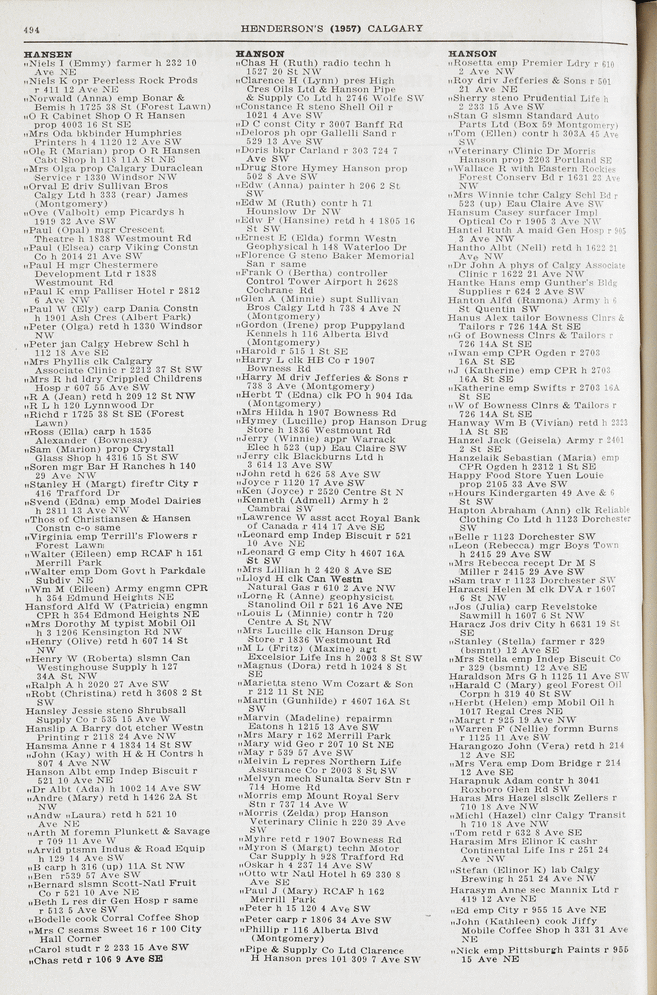 494
HENDERSON'S (1957) CALGARY
HANSEN
„Niels I (Emmy) farmer h 232 10
Ave NE
„Niels K opr Peerless Rock Prods
r 411 12 Ave NE
„Norwald (Anna) emp Bonar &
Bemis h 1725 38 St (Forest Lawn)
„O R Cabinet Shop O R Hansen
prop 4003 16 St SE
„Mrs Oda bkbinder Humphries
Printers h 4 1120 12 Ave SW
„Ole R (Marian) prop O R Hansen
Cabt Shop h 118 11A St NE
„Mrs Olga prop Calgary Duraclean
Service r 1330 Windsor NW
„Orval E driv Sullivan Bros
Calgy Ltd h 333 (rear) James
(Montgomery)
„Ove (Valbolt) emp Picardys h
1919 32 Ave SW
„Paul (Opal) mgr Crescent
Theatre h 1838 Westmount Rd
„Paul (Elsea) carp Viking Constn
Co h 2014 21 Ave SW
„Paul H mgr Chestermere
Development Ltd r 1838
Westmount Rd
„Paul K emp Palliser Hotel r 2812
6 Ave NW
„Paul W (Ely) carp Dania Constn
h 1901 Ash Cres (Albert Park)
„Peter (Olga) retd h 1330 Windsor
NW
„Peter jan Calgy Hebrew Schl h
112 18 Ave SE
„Mrs Phyllis clk Calgary
Associate Clinic r 2212 37 St SW
„Mrs R hd ldry Crippled Childrens
Hosp r 607 55 Ave SW
„R A (Jean) retd h 209 12 St NW
„R L h 120 Lynnwood Dr
„Richd r 1725 38 St SE (Forest
Lawn)
„Ross (Ella) carp h 1535
Alexander (Bownesa)
„Sam (Marion) prop Crystall
Glass Shop h 4316 15 St SW
„Soren mgr Bar H Ranches h 140
29 Ave NW
„Stanley H (Margt) fireftr City r
416 Trafford Dr
„Svend (Edna) emp Model Dairies
h 2811 13 Ave NW
„Thos of Christiansen & Hansen
Constn c-o same
„Virginia emp Terrill's Flowers r
Forest Lawn
„Walter (Eileen) emp RCAF h 151
Merrill Park
„Walter emp Dom Govt h Parkdale
Subdiv NE
„Wm M (Eileen) Army engmn
CPR h 354 Edmund Heights NE
Hansford Alfd W (Patricia) engmn
CPR h 354 Edmond Heights NE
„Mrs Dorothy M typist Mobil Oil
h 3 1206 Kensington Rd NW
„Henry (Olive) retd h 607 14 St
NW
„Henry W (Roberta) slsmn Can
Westinghouse Supply h 127
34A St NW
„Ralph A h 2020 27 Ave SW
„Robt (Christina) retd h 3608 2 St
SW
Hansley Jessie steno Shrubsall
Supply Co r 535 15 Ave W
Hanslip A Barry dot etcher Westn
Printing r 2118 24 Ave NW
Hansma Anne r 4 1834 14 St SW
„John (Kay) with H & H Contrs h
807 4 Ave NW
Hanson Albt emp Indep Biscuit r
521 10 Ave NE
„Dr Albt (Ada) h 1002 14 Ave SW
„Andre (Mary) retd h 1426 2A St
NW
„Andw „Laura) retd h 521 10
Ave NE
„Arth M foremn Plunkett & Savage
r 709 11 Ave W
„Arvid ptsmn Indus & Road Equip
h 129 14 Ave SW
„B carp h 316 (up) 11A St NW
„Ben r539 57 Ave SW
„Bernard slsmn Scott-Natl Fruit
Co r 521 10 Ave NE
„Beth L res dir Gen Hosp r same
r 513 5 Ave SW
„Bodelle cook Corral Coffee Shop
„Mrs C seams Sweet 16 r 100 City
Hall Corner
„Carol studt r 2 233 15 Ave SW
„Chas retd r 106 9 Ave SE
HANSON
„Chas H (Ruth) radio techn h
1527 20 St NW
„Clarence H (Lynn) pres High
Cres Oils Ltd & Hanson Pipe
& Supply Co Ltd h 2746 Wolfe SW
„Constance R steno Shell Oil r
1021 4 Ave SW
„D C const City r 3007 Banff Rd
„Deloros ph opr Gallelli Sand r
529 13 Ave SW
„Doris bkpr Carland r 303 724 7
Ave SW
„Drug Store Hymey Hanson prop
502 8 Ave SW
„Edw (Anna) painter h 206 2 St
SW
„Edw M (Ruth) contr h 71
Hounslow Dr NW
„Edw P (Hansine) retd h 4 1805 16
St SW
„Ernest E (Elda) formn Westn
Geophysical h 148 Waterloo Dr
„Florence G steno Baker Memorial
San r same
„Frank O (Bertha) controller
Control Tower Airport h 2628
Cochrane Rd
„Glen A (Minnie) supt Sullivan
Bros Calgy Ltd h 738 4 Ave N
(Montgomery)
„Gordon (Irene) prop Puppyland
Kennels h 116 Alberta Blvd
(Montgomery)
„Harold r 515 1 St SE
„Harry L clk HB Co r 1907
Bowness Rd
„Harry M driv Jefferies & Sons r
738 3 Ave (Montgomery)
„Herbt T (Edna) clk PO h 904 Ida
(Montgomery)
„Mrs Hilda h 1907 Bowness Rd
„Hymey (Lucille) prop Hanson Drug
Store h 1836 Westmount Rd
„Jerry (Winnie) appr Warrack
Elec h 523 (up) Eau Claire SW
„Jerry clk Blackburns Ltd h
3 614 13 Ave SW
„John retd h 626 58 Ave SW
„Joyce r 1120 17 Ave SW
„Ken (Joyce) r 2520 Centre St N
„Kenneth (Admell) Army h 2
Cambrai SW
„Lawrence W asst acct Royal Bank
of Canada r 414 17 Ave SE
„Leonard emp Indep Biscuit r 521
10 Ave NE
„Leonard G emp City h 4607 16A
St SW
„Mrs Lillian h 2 420 8 Ave SE
„Lloyd H clk Can Westn
Natural Gas r 610 2 Ave NW
„Lorne R (Anne) geophysicist
Stanolind Oil r 521 16 Ave NE
„Louis L (Minnie) contr h 720
Centre A St NW
„Mrs Lucille clk Hanson Drug
Store r 1836 Westmount Rd
„M L (Fritz) (Maxine) agt
Excelsior Life Ins h 2003 8 St SW
„Magnus (Dora) retd h 1024 8 St
SE
„Marietta steno Wm Cozart & Son
r 212 11 St NE
„Martin (Gunhilde) r 4607 16A St
SW
„Marvin (Madeline) repairmn
Eatons h 1215 13 Ave SW
„Mrs Mary h 162 Merrill Park
„Mary wid Geo r 207 10 St NE
„May r 539 57 Ave SW
„Melvin L repres Northern Life
Assurance Co r 2003 8 St SW
„Melvyn mech Sunalta Serv Stn r
714 Home Rd
„Morris emp Mount Royal Serv
Stn r 737 14 Ave W
„Morris (Zelda) prop Hanson
Veterinary Clinic h 220 39 Ave
SW
„Myhre retd r 1907 Bowness Rd
„Myron S (Margt) techn Motor
Car Supply h 928 Trafford Rd
„Oskar h 4 237 14 Ave SW
„Otto wtr Natl Hotel h 69 330 8
Ave SE
„Paul J (Mary) RCAF h 162
Merrill Park
„Peter h 15 120 4 Ave SW
„Peter carp r 1806 34 Ave SW
„Phillip r 116 Alberta Blvd
(Montgomery)
„Pipe & Supply Co Ltd Clarence
H Hanson pres 101 309 7 Ave SW
HANSON
„Rosetta emp Premier Ldry r 610
2 Ave NW
„Roy driv Jefferies & Sons r 501
21 Ave NE
„Sherry steno Prudential Life h
2 233 15 Ave SW
„Stan G slsmn Standard Auto
Parts Ltd (Box 59 Montgomery)
„Tom (Ellen) contr h 303A 45 Ave
SW
„Veterinary Clinic Dr Morris
Hanson prop 2203 Portland SE
„Wallace R with Eastern Rockies
Forest Conserv Bd r 1631 23 Ave
NW
„Mrs Winnie tchr Calgy Schl Bd r
523 (up) Eau Claire Ave SW
Hansum Casey surfacer Impl
Optical Co r 1905 3 Ave NW
Hantel Ruth A maid Gen Hosp r 905
3 Ave NW
Hantho Albt (Nell) retd h 1622 21
Ave NW
„Dr John A phys of Calgy Associate
Clinic r 1622 21 Ave NW
Hantke Hans emp Gunther's Bldg
Supplies r 624 2 Ave SW
Hanton Alfd (Ramona) Army h 6
St Quentin SW
Hanus Alex tailor Bowness Clnrs &
Tailors r 726 14A St SE
„G of Bowness Clnrs & Tailors r
726 14A St SE
„Iwan emp CPR Ogden r 2703
16A St SE
„J (Katherine) emp CPR h 2703
16A St SE
„Katherine emp Swifts r 2703 16A
St SE
„W of Bowness Clnrs & Tailors r
726 14A St SE
Hanway Wm B (Vivian) retd h 2323
1A St SE
Hanzel Jack (Geisela) Army r 2401
2 St SE
Hanzelaik Sebastian (Maria) emp
CPR Ogden h 2312 1 St SE
Happy Food Store Yuen Louie
prop 2105 33 Ave SW
„Hours Kindergarten 49 Ave & 6
St SW
Hapton Abraham (Ann) clk Reliable
Clothing Co Ltd h 1123 Dorchester
SW
„Belle r 1123 Dorchester SW
„Leon (Rebecca) mgr Boys Town
h 2415 29 Ave SW
„Mrs Rebecca recept Dr M S
Miller r 2415 29 Ave SW
„Sam trav r 1123 Dorchester SW
Haracsi Helen M clk DVA r 1607
6 St NW
„Jos (Julia) carp Revelstoke
Sawmill h 1607 6 St NW
Haracz Jos driv City h 6631 19 St
SE
„Stanley (Stella) farmer r 329
(bsmnt) 12 Ave SE
„Mrs Stella emp Indep Biscuit Co
r 329 (bsmnt) 12 Ave SE
Haraldson Mrs G h 1125 11 Ave SW
„Harald C (Mary) geol Forest Oil
Corpn h 319 40 St SW
„Herbt (Helen) emp Mobil Oil h
1017 Regal Cres NE
„Margt r 925 19 Ave NW
„Warren F (Nellie) formn Burns
r 1125 11 Ave SW
Harangozo John (Vera) retd h 214
12 Ave SE
„Mrs Vera emp Dom Bridge r 214
12 Ave SE
Harapnuk Adam contr h 3041
Roxboro Glen Rd SW
Haras Mrs Hazel slsclk Zellers r
710 18 Ave NW
„Michl (Hazel) clnr Calgy Transit
h 710 18 Ave NW
„Tom retd r 632 8 Ave SE
Harasim Mrs Elinor K cashr
Continental Life Ins r 251 24
Ave NW
„Stefan (Ellinor K) lab Calgy
Brewing h 251 24 Ave NW
Harasym Anne sec Mannix Ltd r
419 12 Ave NE
„Ed emp City r 955 15 Ave NE
„John (Kathleen) cook Jiffy
Mobile Coffee Shop h 331 31 Ave
NE
„Nick emp Pittsburgh Paints r 955
15 Ave NE